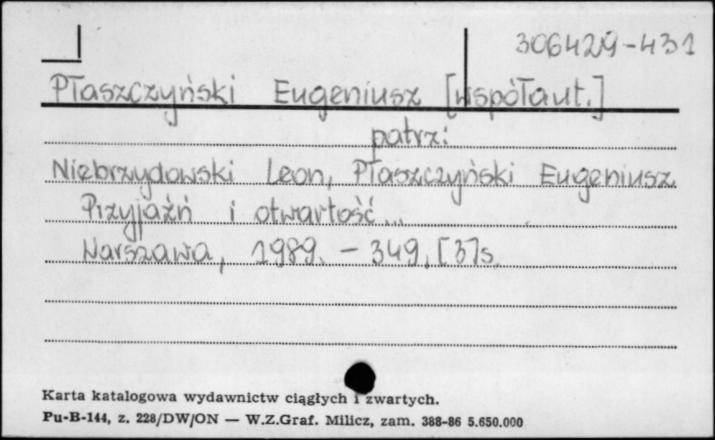 306429-431
Płaszczyński Eugeniusz [współaut.]
patrz:
Niebrzydowski Leon, Płaszczyński Eugeniusz
Przyjaźń i otwartość...
Warszawa, 1989. - 349, [3]s.
Karta katalogowa wydawnictw ciągłych i zwartych.
Pu-B-144, z. 228/DW/ON — W.Z.Graf. Milicz, zam. 388-86 5.650.000